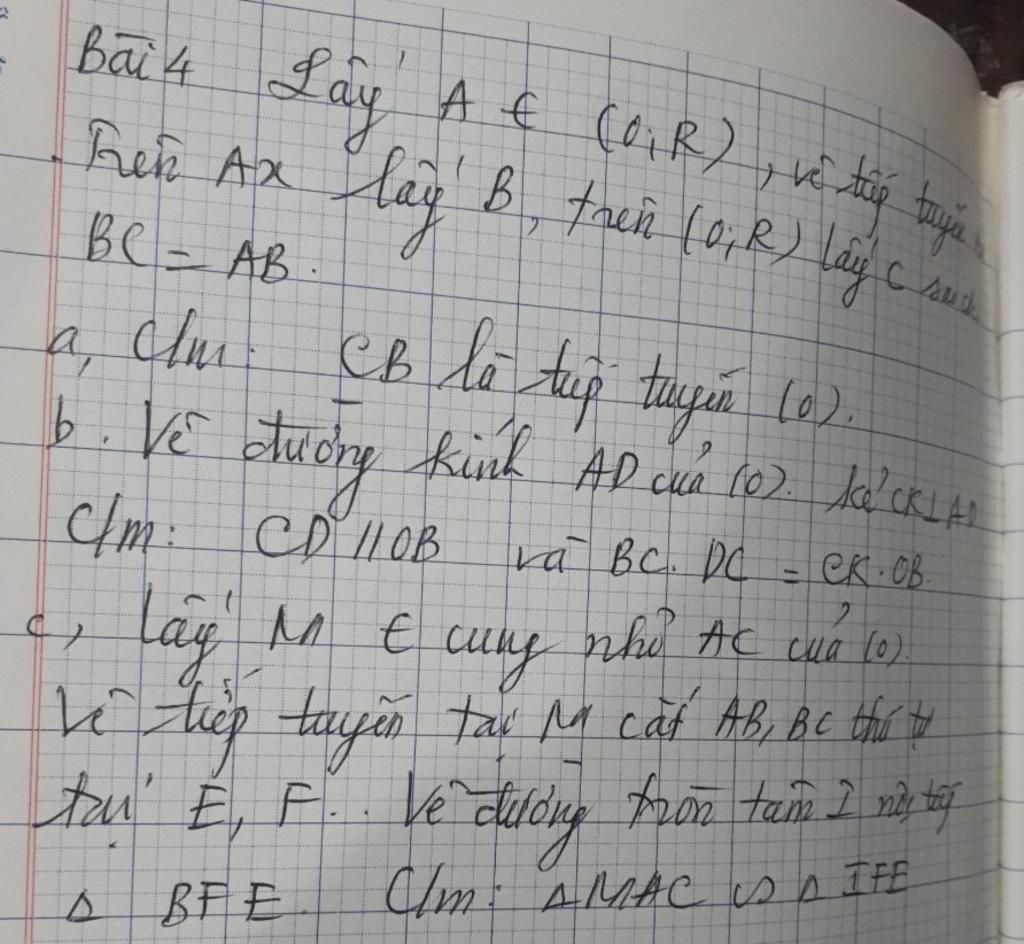 Bài 4 Lấy A ∈ (O;R), vẽ tiếp tuyến
Trên Ax lấy B, trên (O;R) lấy C sao ch
BC = AB.
a, C/m: CB là tiếp tuyến (O).
b. Vẽ đường kính AD của (O). kẻ CK⊥AD
C/m: CD // OB và BC. DC = CK. OB.
c, Lấy M ∈ cung nhỏ AC của (O).
Vẽ tiếp tuyến tại M cắt AB, BC thứ tự
tại E, F.. Vẽ đường tròn tâm I nội tiếp
Δ BFE. C/m: ΔMAC ∽ Δ IFE